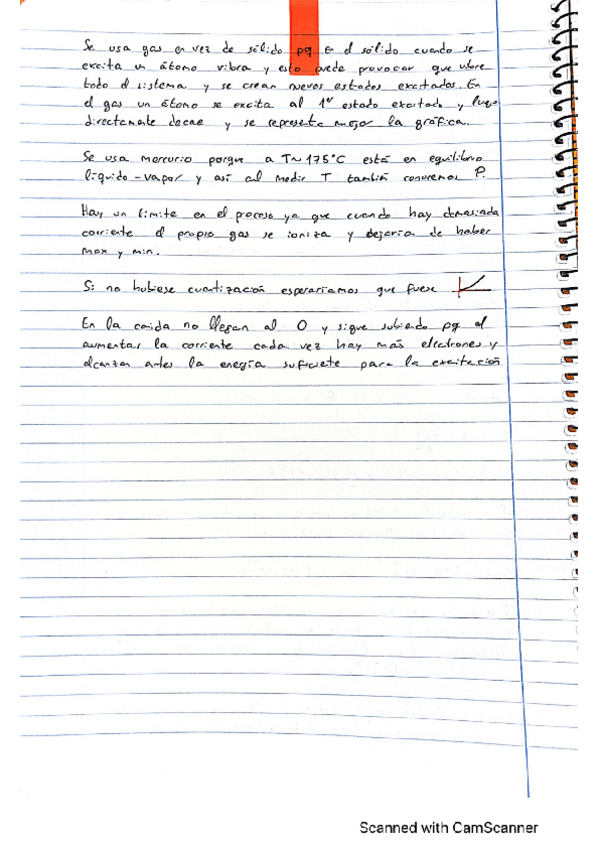 Se usa gas en vez de sólido pq en el sólido cuando se
excita un átomo vibra y esto puede provocar que vibre
todo el sistema y se crean nuevos estados excitados. En
el gas un átomo se excita al 1er estado excitado y luego
directamente decae y se representa mejor la gráfica.
Se usa mercurio porque a T~175°C está en equilibrio
líquido-vapor y así al medir T también conocemos P.
Hay un límite en el proceso ya que cuando hay demasiada
corriente el propio gas se ioniza y dejaría de haber
max y min.
Si no hubiese cuantización esperaríamos que fuese
En la caída no llegan al 0 y sigue subiendo pq al
aumentar la corriente cada vez hay más electrones y
alcanzan antes la energía suficiente para la excitación
Scanned with CamScanner